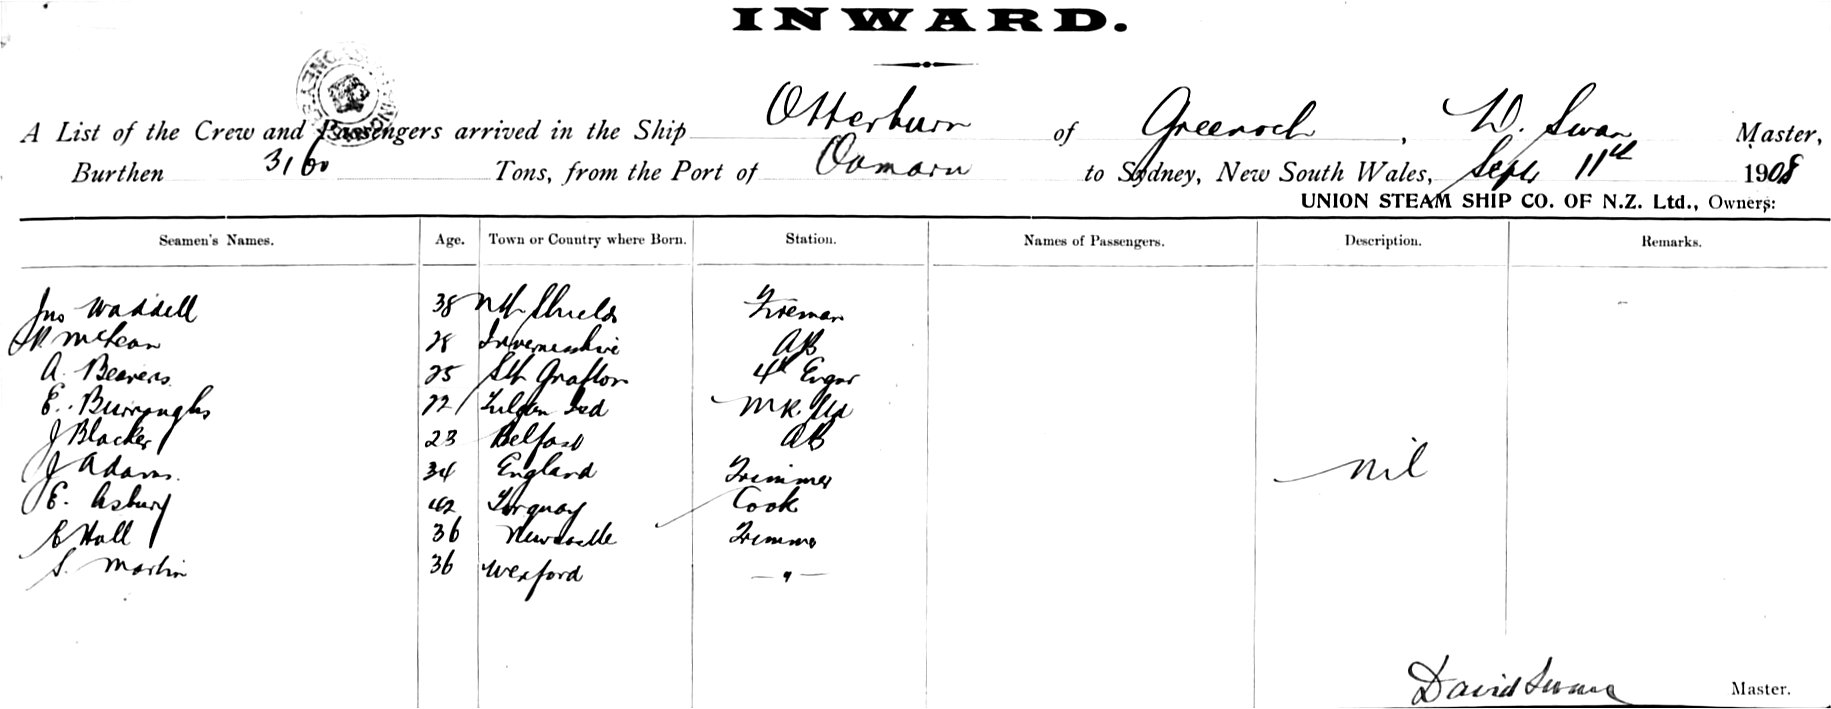 INWARD.
A List of the Crew and Passengers arrived in the Ship Otterburn of Greenock, D. Swan Master,
Burthen 3160 Tons, from the Port of Oamaru to Sydney, New South Wales, Sept 11th 1908
UNION STEAM SHIP CO. OF N.Z. Ltd., Owners:
Seamen's Names. Age. Town or Country where Born. Station. Names of Passengers. Description. Remarks.
Jno Waddell 38 Nth Shields Fireman
McLean 28 Invernesshire AB
A. Beavers 25 Sth Grafton 4th Engnr
E. Burroughs 22 MR Std
J Blacker 23 Belfast AB
J Adams. 34 England Trimmer nil
E. Asbury 42 Torquay Cook
E Hall 36 Newcastle Trimmer
S. Martin 36 Wexford — " —
David Swan Master.